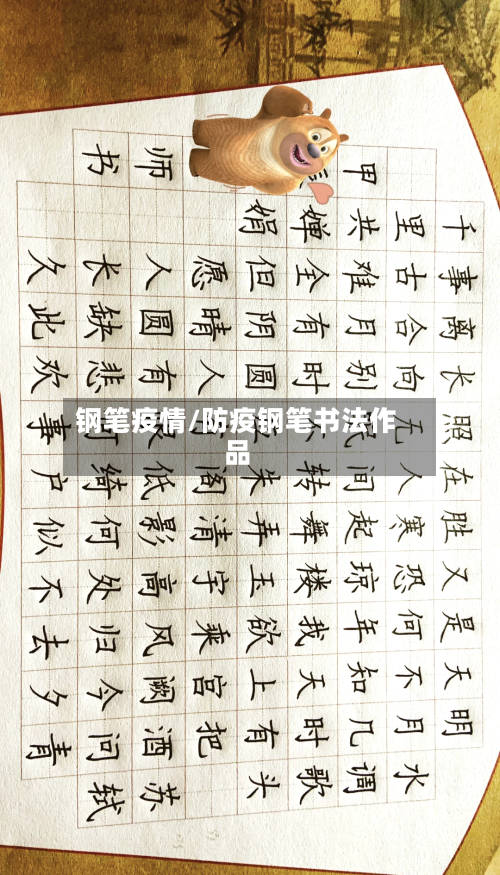 水调歌头 苏轼
明月几时有把酒问青
天不知天上宫阙今夕
是何年我欲乘风归去
又恐琼楼玉宇高处不
胜寒起舞弄清影何似
在人间转朱阁低绮户
照无眠事
长向别时圆人有悲欢
离合月有阴晴圆缺此
事古难全但愿人长久
千里共婵娟
甲 师书
钢笔疫情/防疫钢笔书法作
品